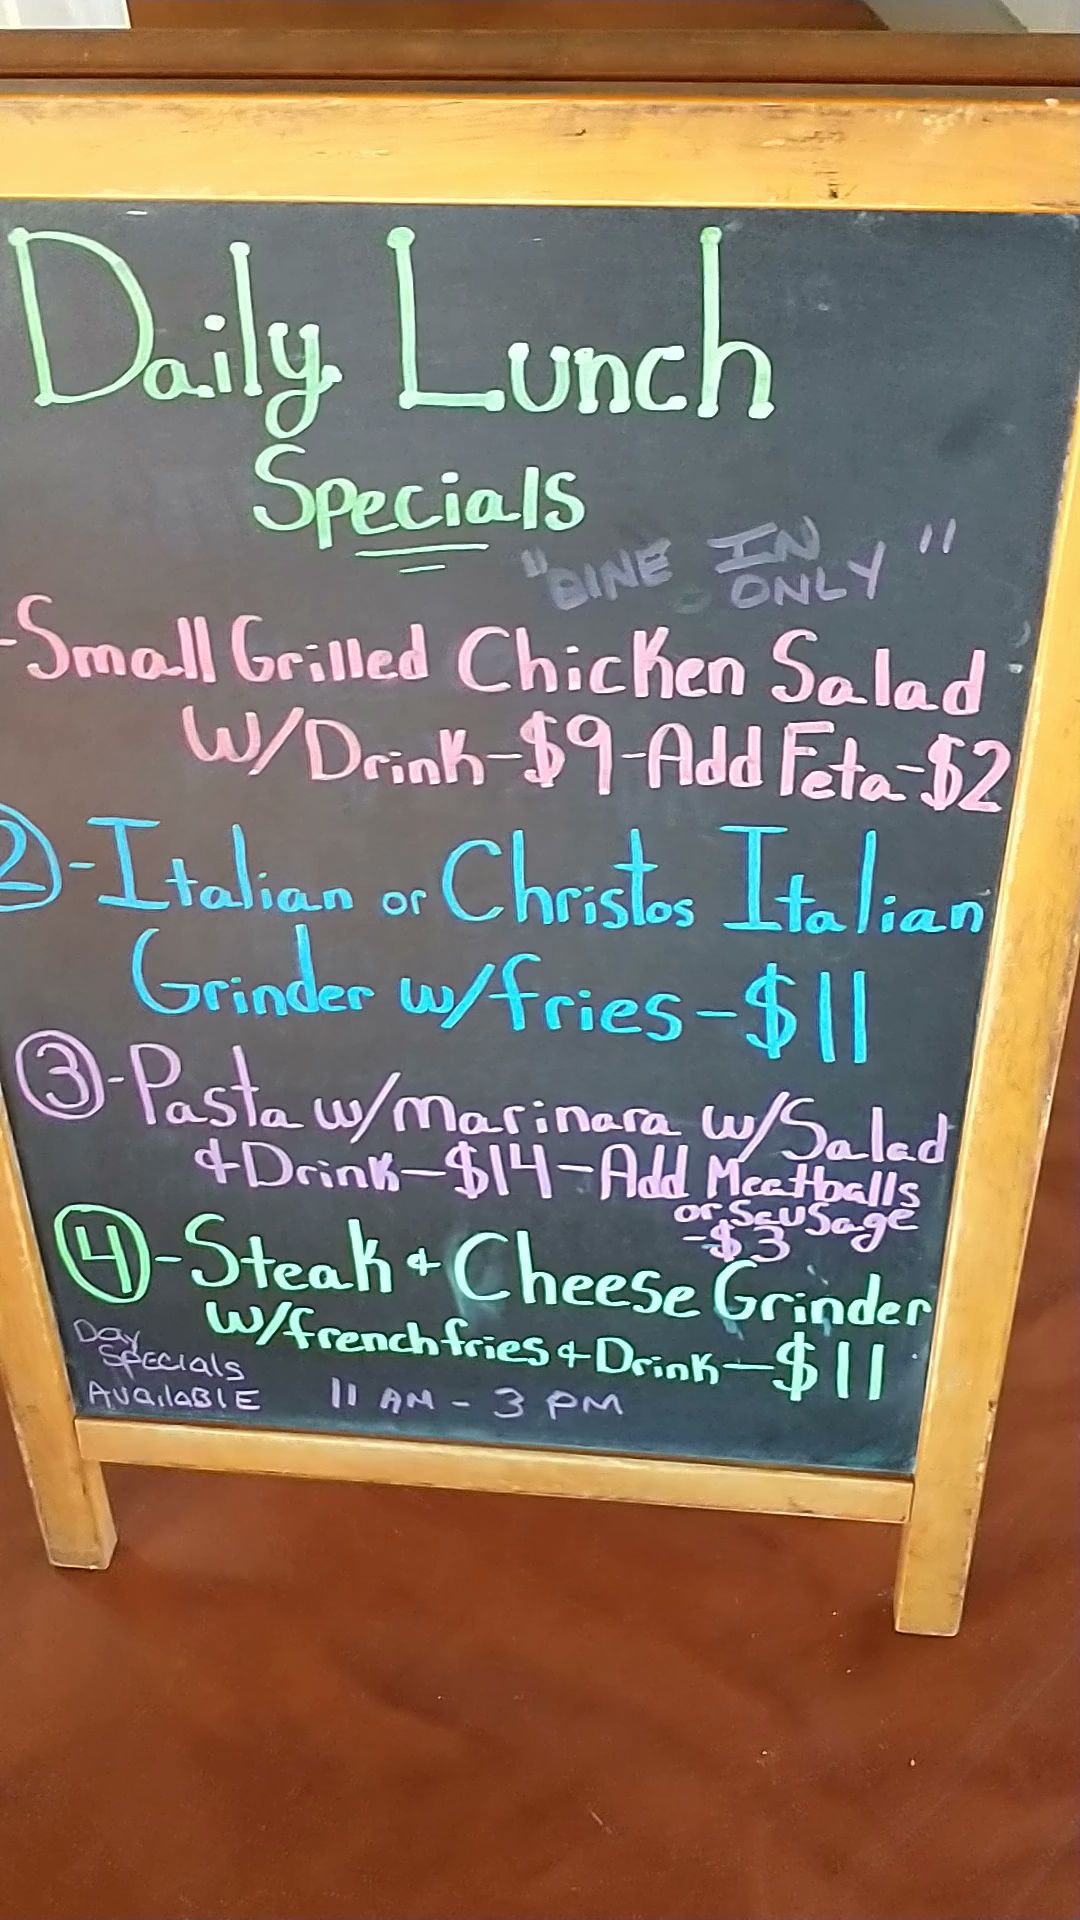 Daily Lunch
Specials
"DINE IN
ONLY"
-Small Grilled Chicken Salad
W/Drink-$9-Add Feta-$2
2-Italian or Christos Italian
Grinder w/fries-$11
3-Pasta w/marinara w/Salad
+Drink-$14-Add Meatballs
or Sausage
-$3
4-Steak + Cheese Grinder
W/french fries + Drink-$11
Day
Specials
Available 11 AM - 3 PM